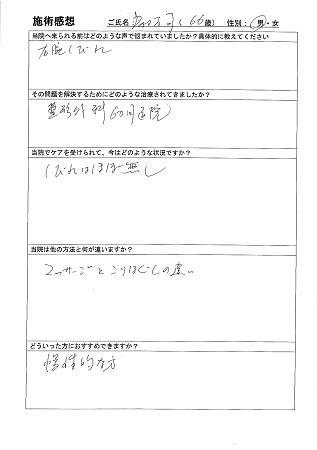 施術感想 ご氏名 (66歳) 性別:男・女
当院へ来られる前はどのような声で悩まれていましたか?具体的に教えてください
右腕しびれ
その問題を解決するためにどのような治療されてきましたか?
整形外科60日通院
当院でケアを受けられて、今はどのような状況ですか?
しびれはほぼ無し
当院は他の方法と何が違いますか?
マッサージとこりほぐしの違い
どういった方におすすめできますか?
慢性的な方